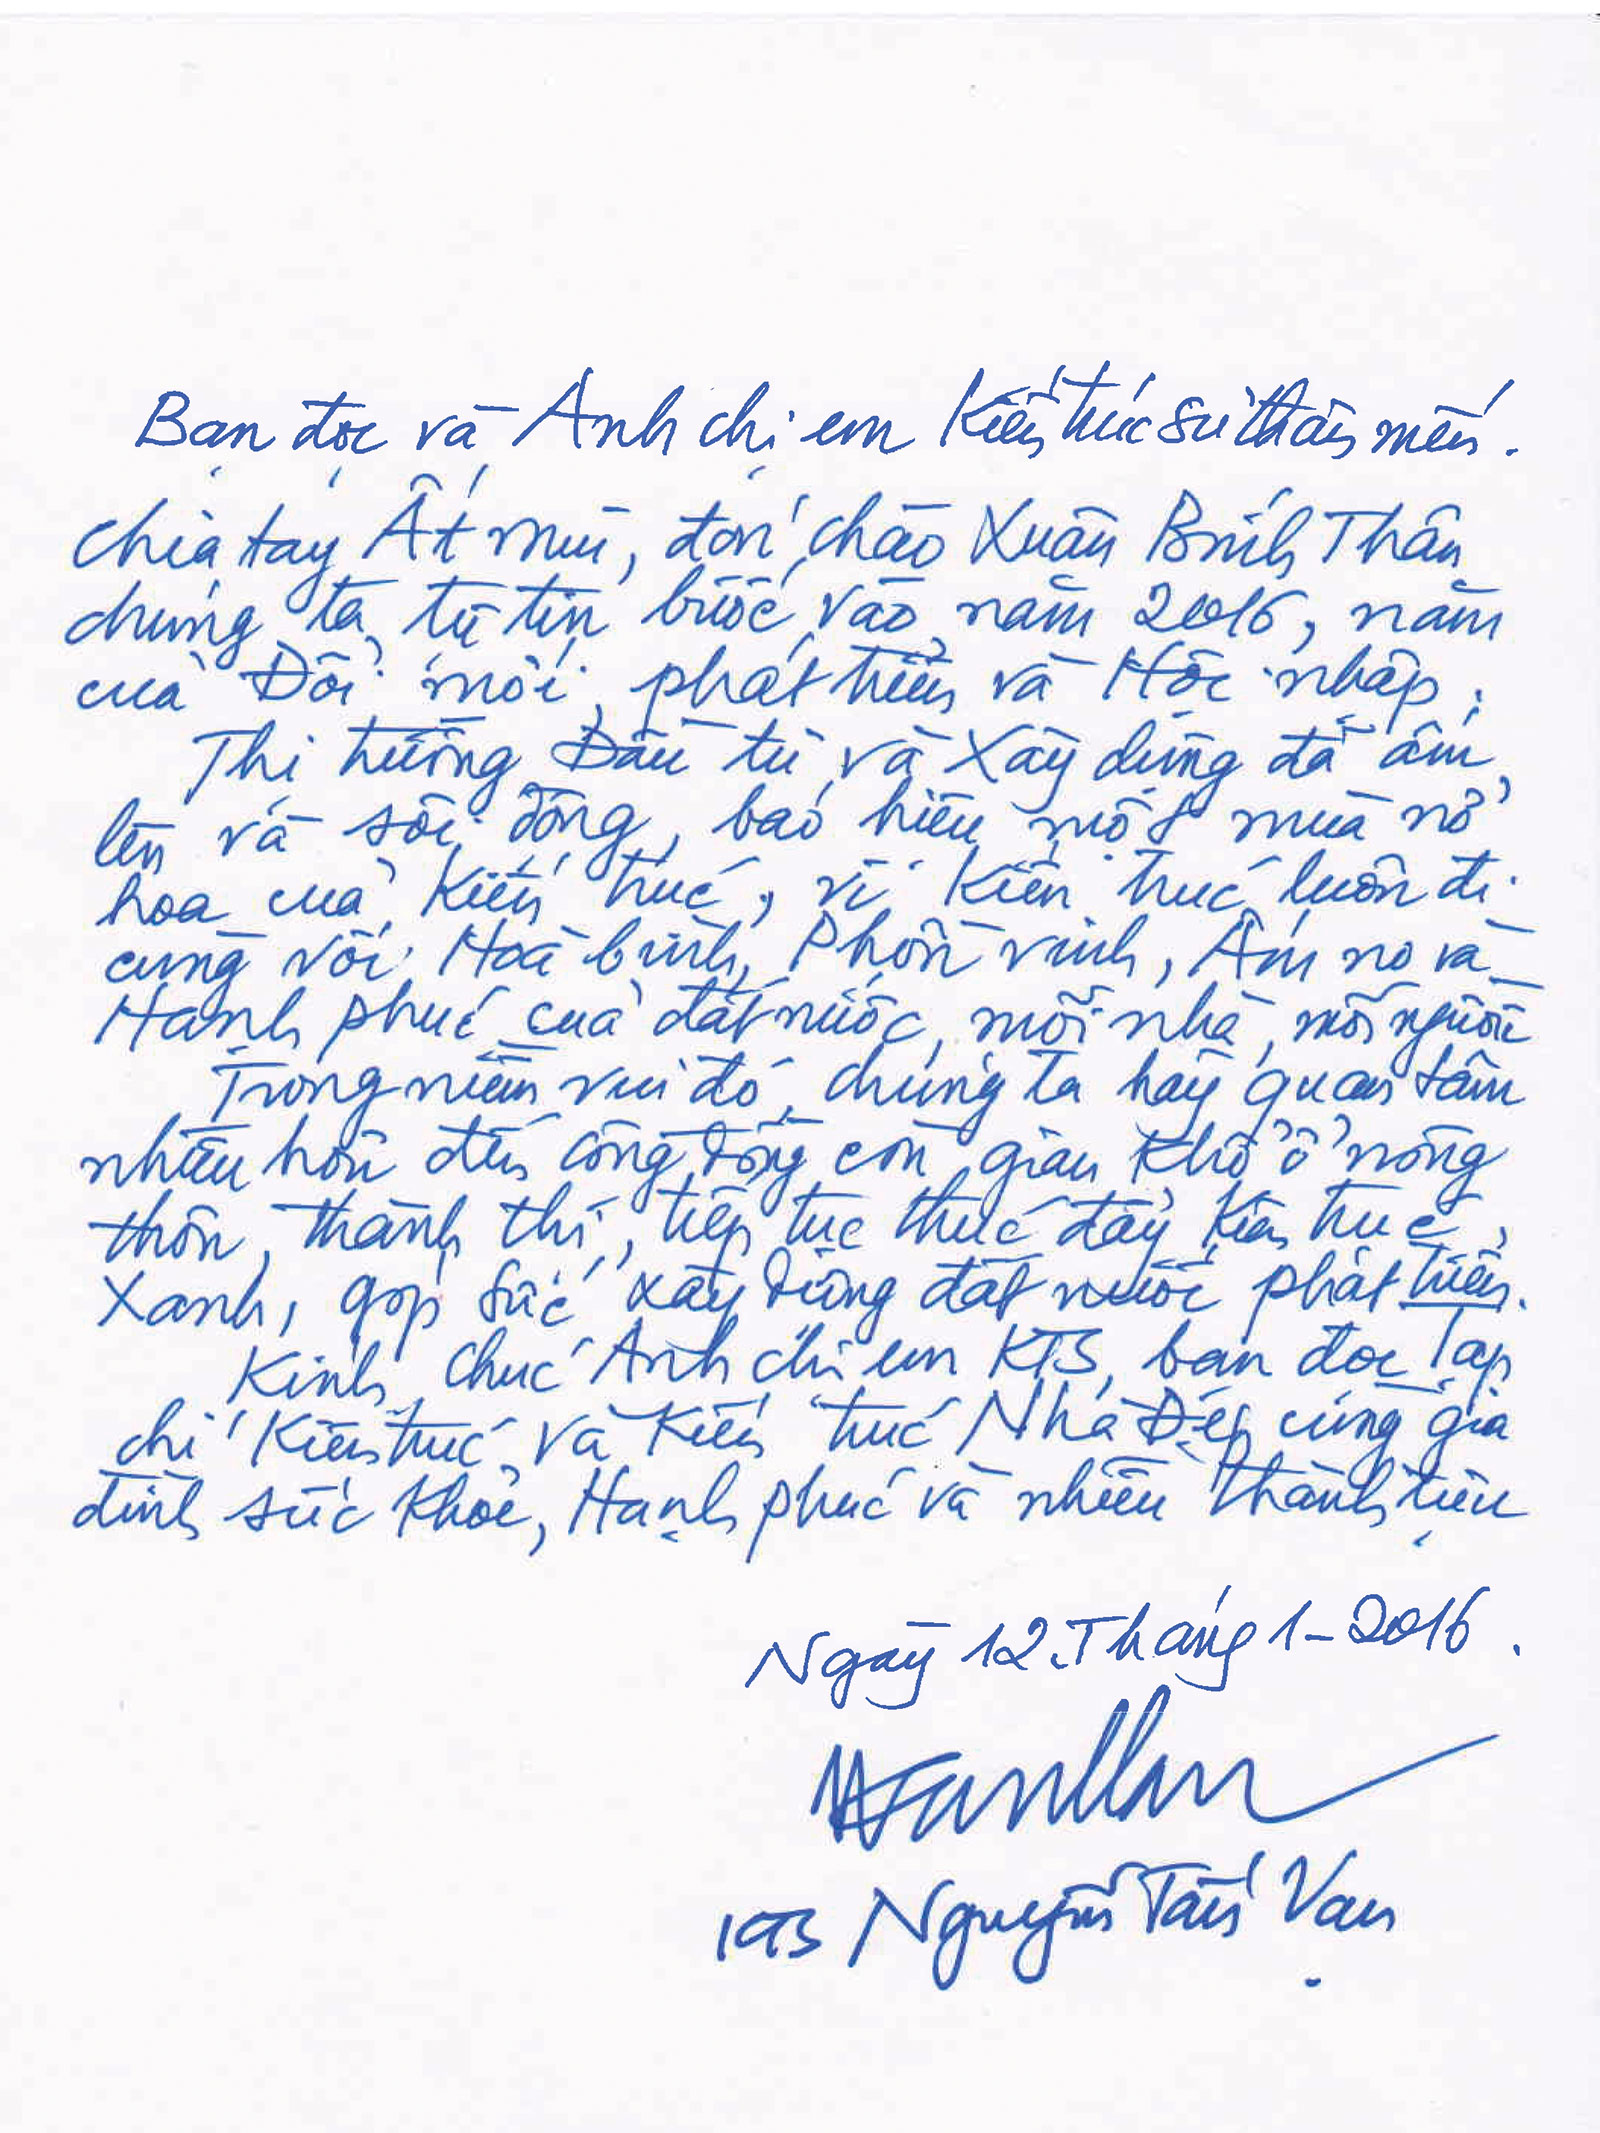 Bạn đọc và Anh chị em Kiến trúc sư thân mến.
Chia tay Ất mùi, đón chào Xuân Bính Thân
chúng ta tự tin bước vào năm 2016, năm
của Đổi mới, phát triển và Hội nhập.
Thị trường Đầu tư và Xây dựng đã ấm
lên và sôi động, báo hiệu một mùa nở
hoa của Kiến trúc, vì Kiến trúc luôn đi
cùng với Hoà bình, Phồn vinh, Ấm no và
Hạnh phúc của đất nước, mỗi nhà, mỗi người
Trong niềm vui đó, chúng ta hãy quan tâm
nhiều hơn đến cộng đồng còn gian khổ ở nông
thôn, thành thị, tiếp tục thúc đẩy Kiến trúc
Xanh, góp sức xây dựng đất nước phát triển.
Kính chúc Anh chị em KTS, bạn đọc Tạp
chí Kiến trúc và Kiến trúc Nhà Đẹp cùng gia
đình sức khỏe, Hạnh phúc và nhiều thành tựu
Ngày 12.Tháng 1-2016.
KTS Nguyễn Tấn Vạn